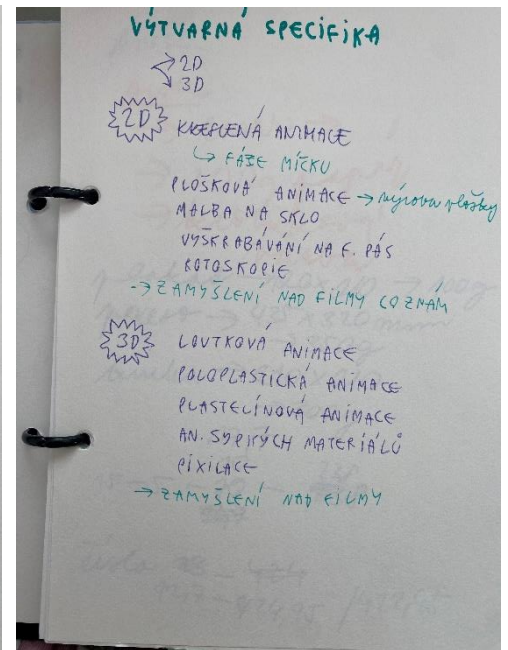 VÝTVARNÁ SPECIFIKA
2D
3D
2D KRESLENÁ ANIMACE
↳ FÁZE MÍČKU
PLOŠKOVÁ ANIMACE → výroba plošky
MALBA NA SKLO
VYŠKRABÁVÁNÍ NA F. PÁS
ROTOSKOPIE
→ ZAMYŠLENÍ NAD FILMY CO ZNÁM
3D LOUTKOVÁ ANIMACE
POLOPLASTICKÁ ANIMACE
PLASTELÍNOVÁ ANIMACE
AN. SYPKÝCH MATERIÁLŮ
PIXILACE
→ ZAMYŠLENÍ NAD FILMY